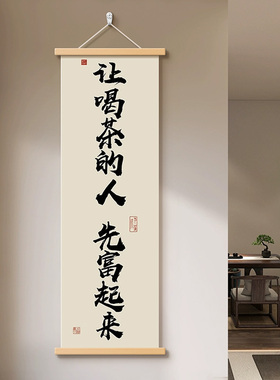 让喝茶的人 先富起来